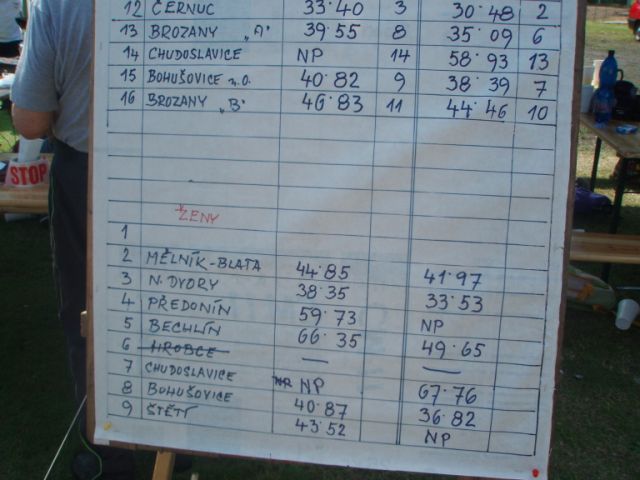 12 ČERNUC 33·40 3 30·48 2
13 BROZANY „A" 39·55 8 35·09 6
14 CHUDOSLAVICE NP 14 58·93 13
15 BOHUŠOVICE n.O. 40·82 9 38·39 7
16 BROZANY „B" 46·83 11 44·46 10
ŽENY
1
2 MĚLNÍK-BLATA 44·85 41·97
3 N.DVORY 38·35 33·53
4 PŘEDONÍN 59·73 NP
5 BECHLÍN 66·35 49·65
6 HROBCE — —
7 CHUDOSLAVICE NP 67·76
8 BOHUŠOVICE 40·87 36·82
9 ŠTĚTÍ 43·52 NP
STOP